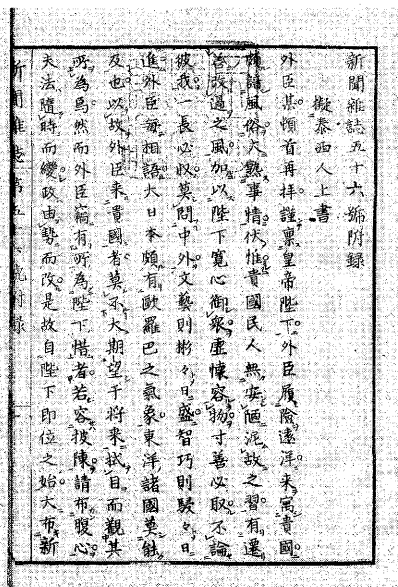 新聞雜誌五十六號附錄
擬泰西人上書
外臣某頓首再拜謹稟皇帝陛下外臣履險遠洋来寓貴國
頗諳風俗大熟事情伏惟貴國民人無安陋泥故之習有遷
善改過之風加以陛下寬心御衆虚懐容物寸善必取不論
彼我一長必収莫問中外文藝則彬々日盛智巧則駸々日
進外臣每相語大日本頗有歐羅巴之氣象東洋諸國莫能
及也以故外臣来貴國者莫不大期望于將来拭目而觀其
所為焉然而外臣竊有所為陛下惜者若容披陳請布腹心
夫法隨時而變政由勢而改是故自陛下即位之始大布新
新聞雜誌第五十六號附錄